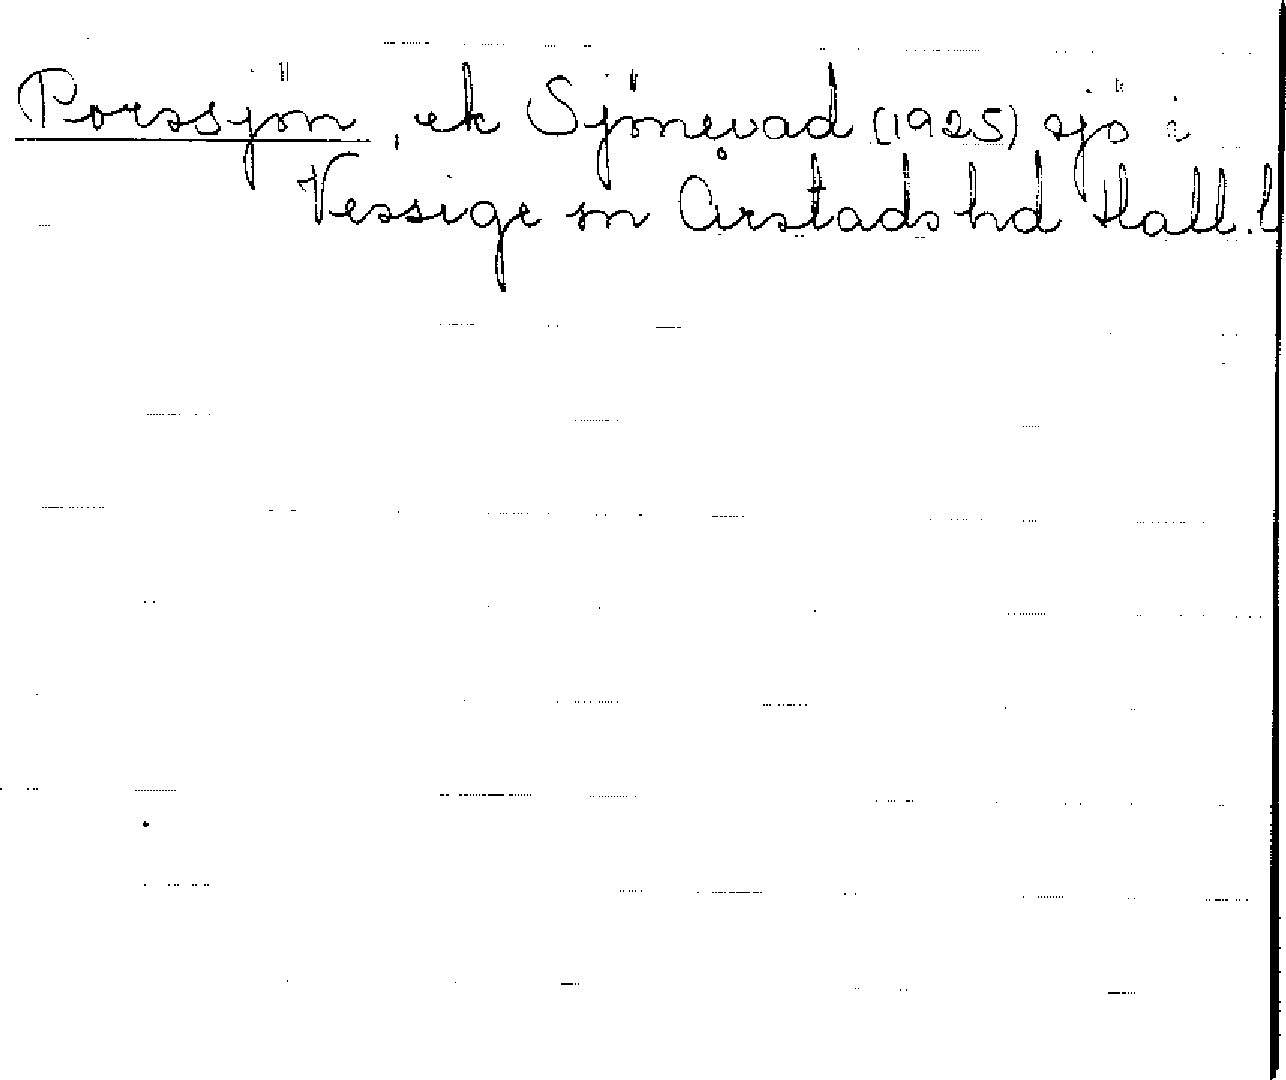 Porssjön, ek Sjönevad (1925) sjö i
Vessige sn Årstads hd Hall. l